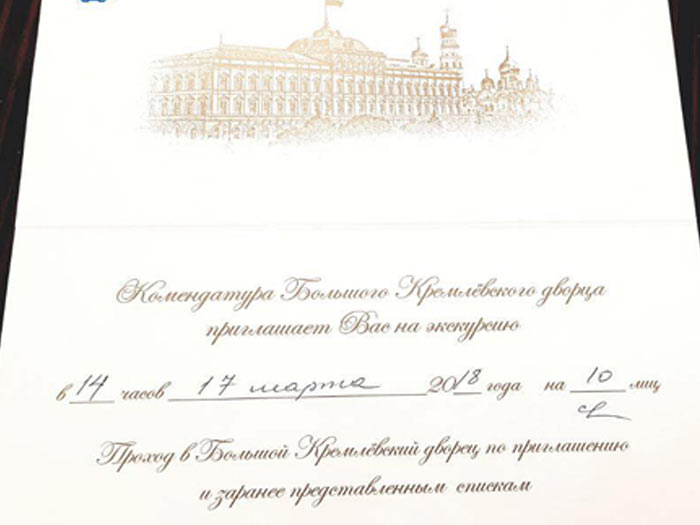 Комендатура Большого Кремлёвского дворца
приглашает Вас на экскурсию
в 14 часов 17 марта 2018 года на 10 лиц
Проход в Большой Кремлёвский дворец по приглашению
и заранее представленным спискам